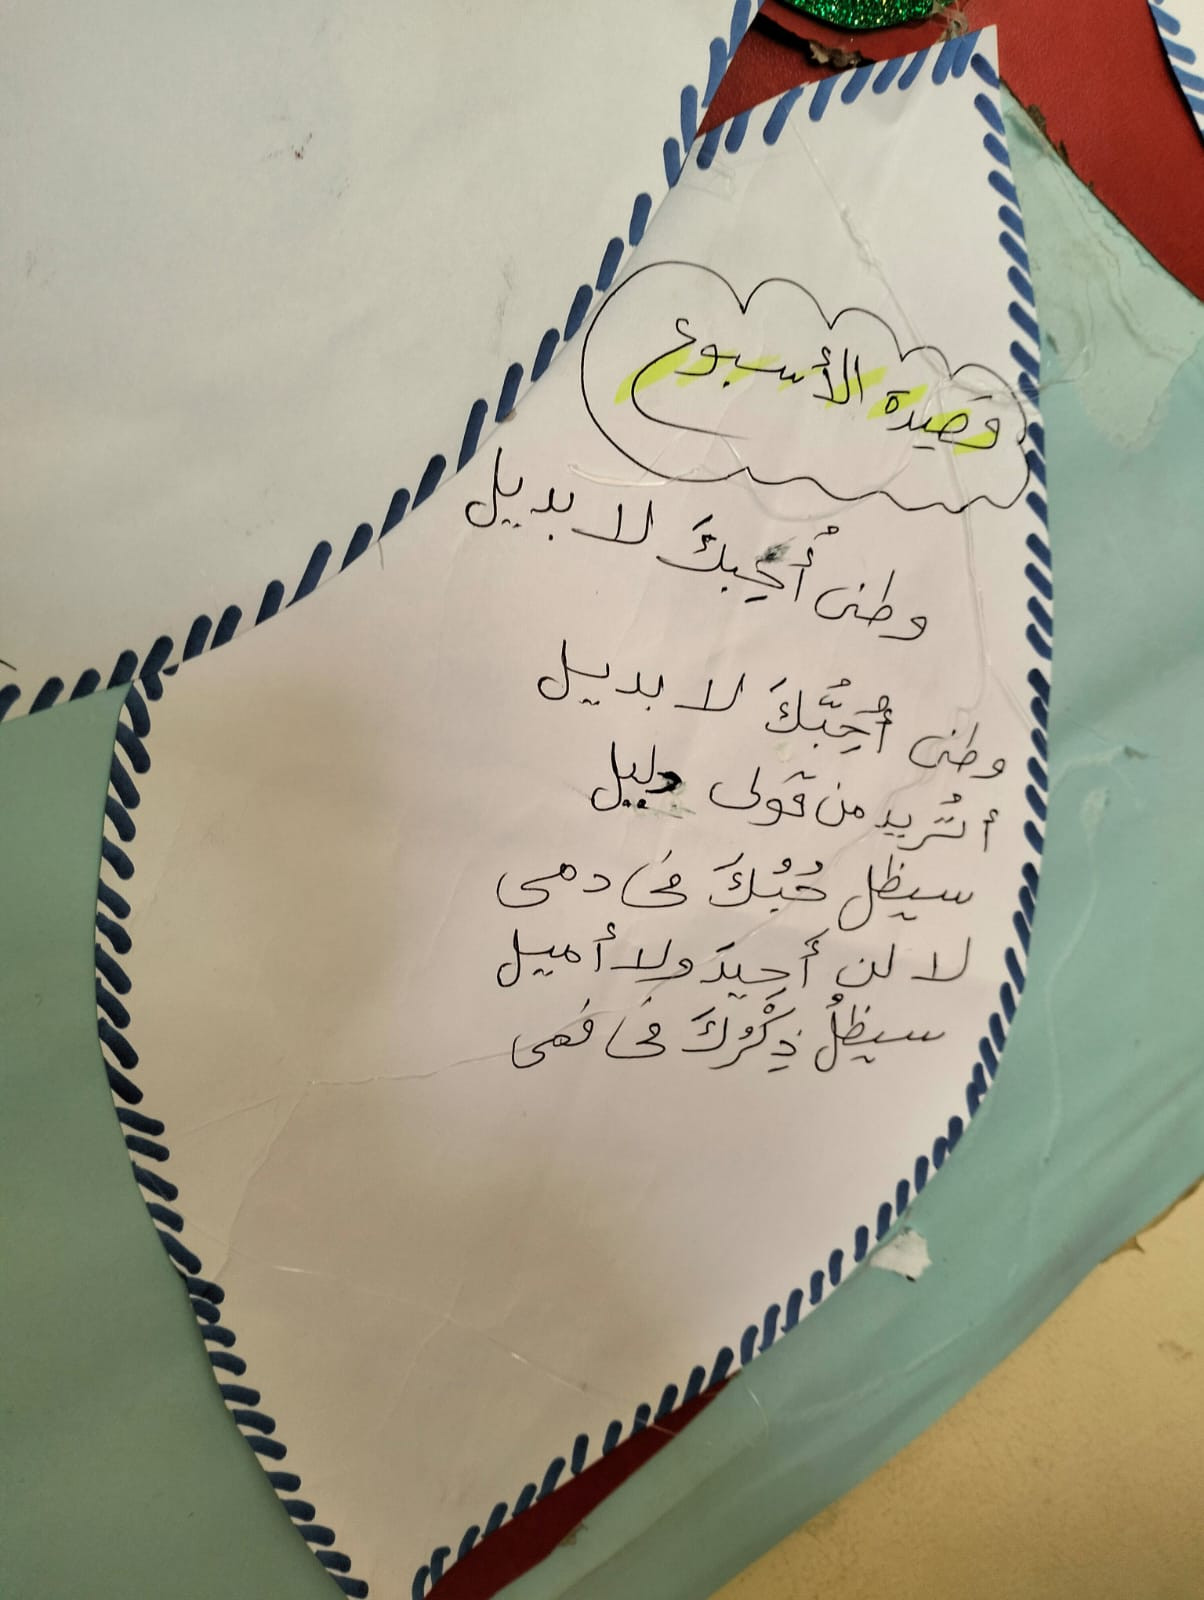 قصيدة الأسبوع
وطنى أُحِبكَ لا بديل
وطنى أُحِبُّكَ لا بديل
أتُريد من قولى دليل
سيظل حُبُكَ فى دمى
لا لن أَحيدَ ولا أميل
سيظلُ ذِكْرُكَ فى فمى